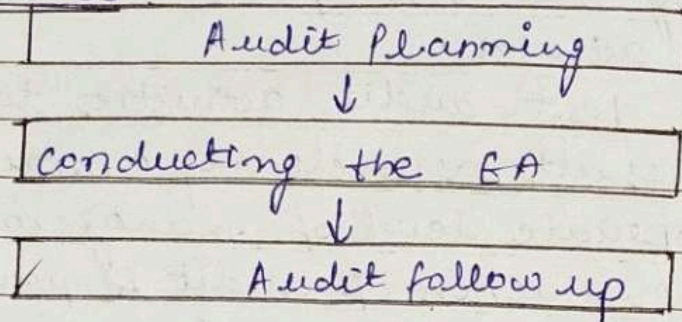 Audit Planning
↓
conducting the EA
↓
Audit follow up